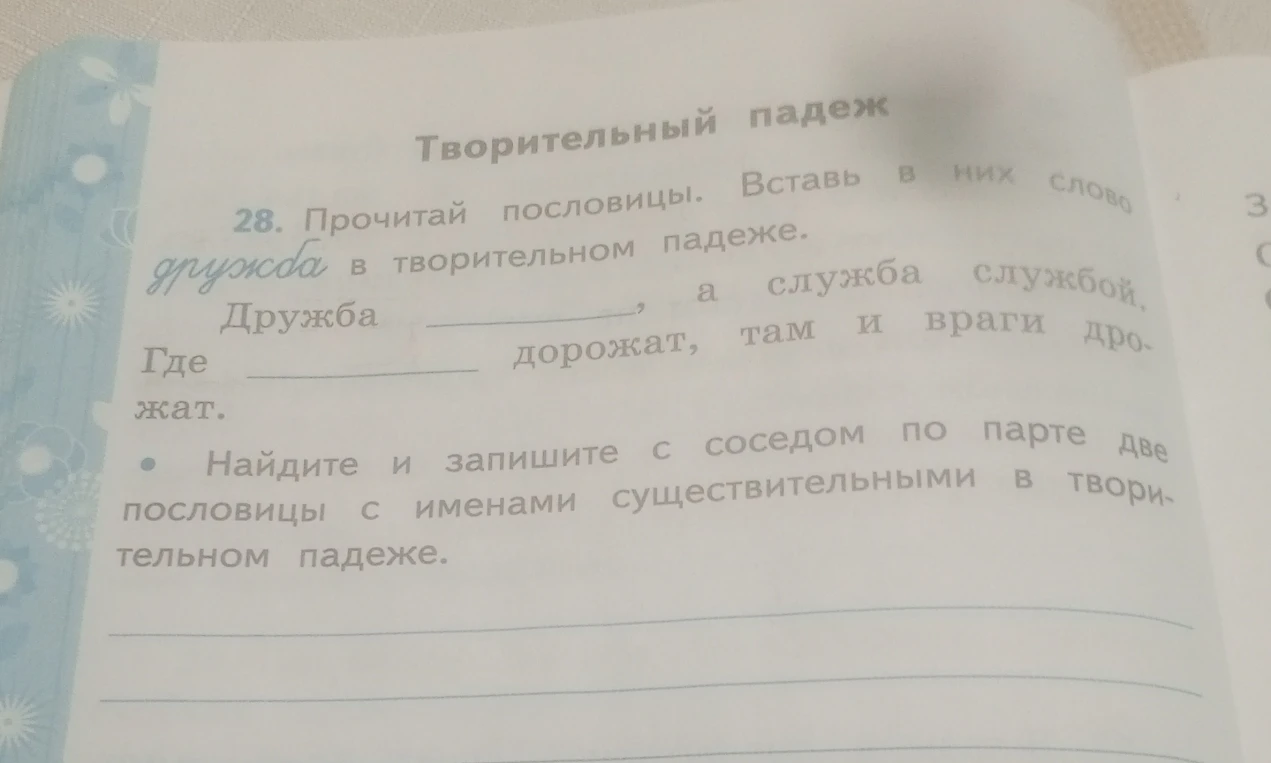 Творительный падеж
28. Прочитай пословицы. Вставь в них слово
дружба в творительном падеже.
Дружба ____________, а служба службой.
Где ____________ дорожат, там и враги дро-
жат.
• Найдите и запишите с соседом по парте две
пословицы с именами существительными в твори-
тельном падеже.
З